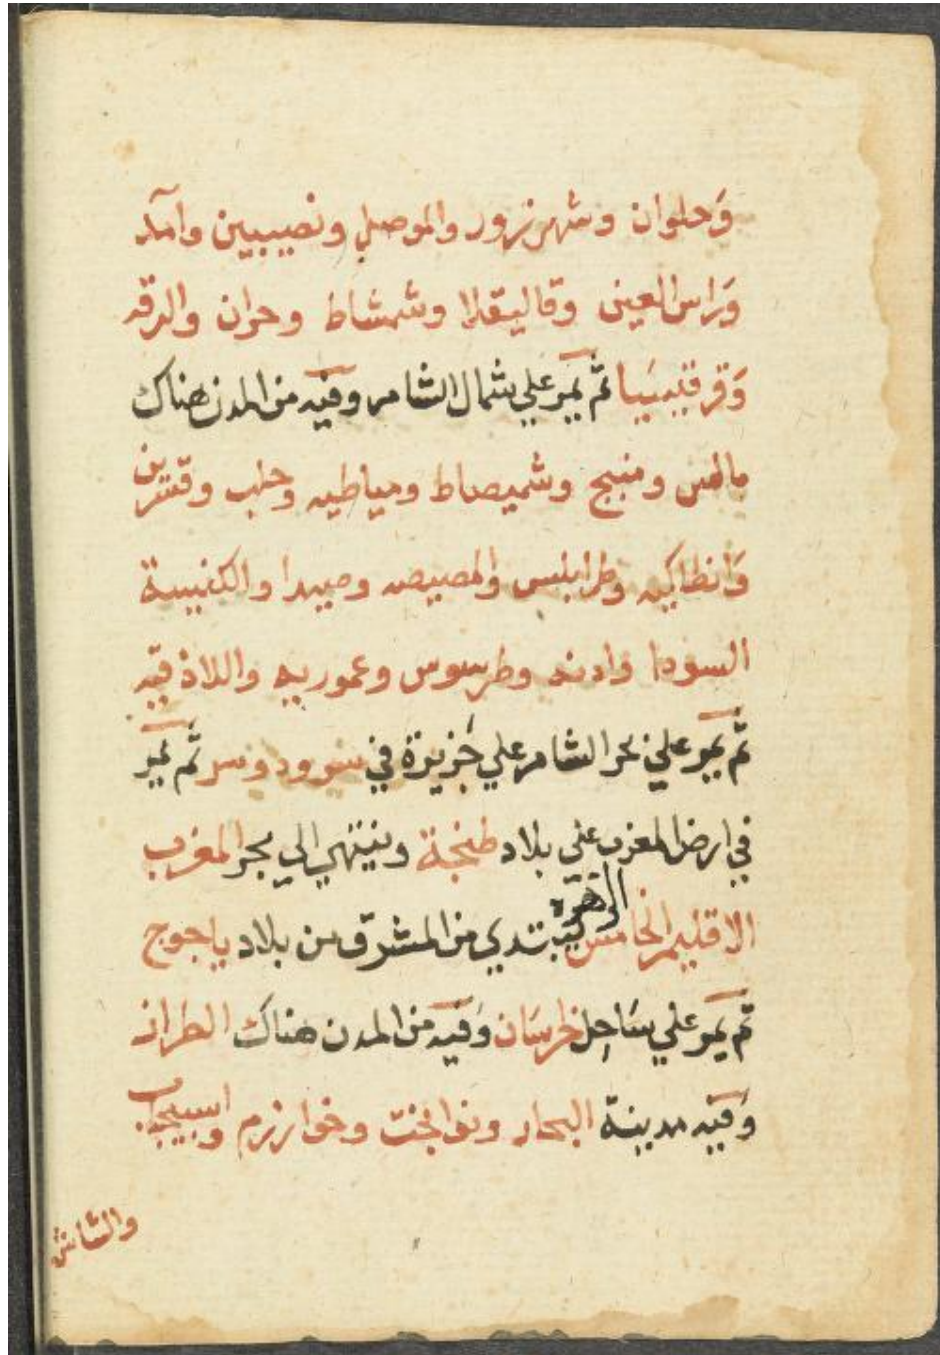 وَحلوان وشهرزور والموصلي ونصيبين وامآد
وَراس العين وقاليقلا وشمشاط وحران والرقه
وَقرقيسَيا ثم يمر علي شمال الشام وفيه من المدن هناك
بالس ومنبج وشميصاط ومياطيه وحلب وقنسرين
وَانطاكيه وطرابلس والمصيصه وصيدا والكنيسة
السودا وادنه وطرسوس وعموريه واللاذقيه
ثم يمر علي بحر الشام علي جَزيرة في ثم يمر
في ارض المغرب علي بلاد طنجة وينتهي الي بحر المغرب
الاقليم الخامس الزهره يبتدي من المشرق من بلاد ياجوج
ثم يمر علي سَاحل خراسَان وَفيه من المدن هناك الطراز
وَفيه مدينة وخوارزم واسبيجاب
والشاش